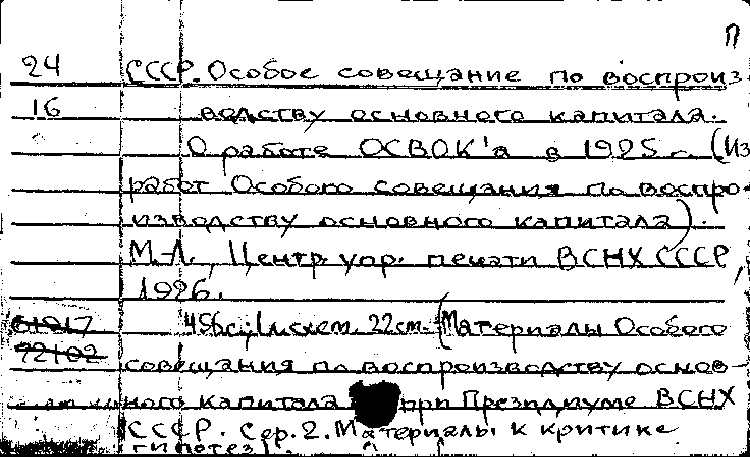 П
24 СССР. Особое совещание по воспроиз-
16 водству основного капитала.
О работе ОСВОК'а в 1925 г. (Из
работ Особого совещания по воспро-
изводству основного капитала).
М.-Л., Центр. упр. печати ВСНХ СССР,
1926.
61917 456с.; 1 л. схем. 22 см. (Материалы Особого
92102 совещания по воспроизводству основ-
ного капитала при Президиуме ВСНХ
СССР. Сер. 2. Материалы к критике
гипотез).